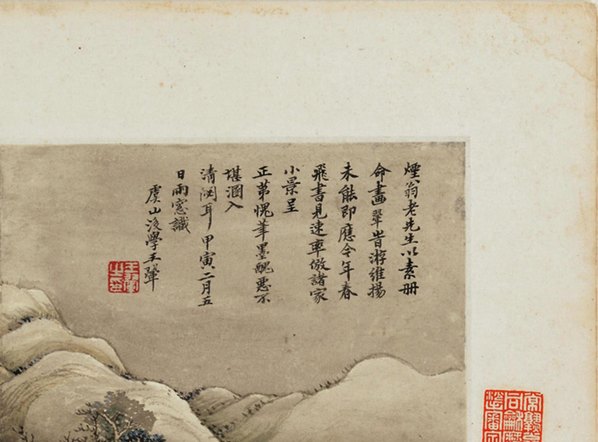 煙翁老先生以素冊
命畫翬旹游維揚
未能即應今年春
飛書見速率倣諸家
小景呈
正第愧筆墨醜惡不
堪溷入
清閟耳甲寅二月五
日雨窓識
虞山後學王翬
王翬之印